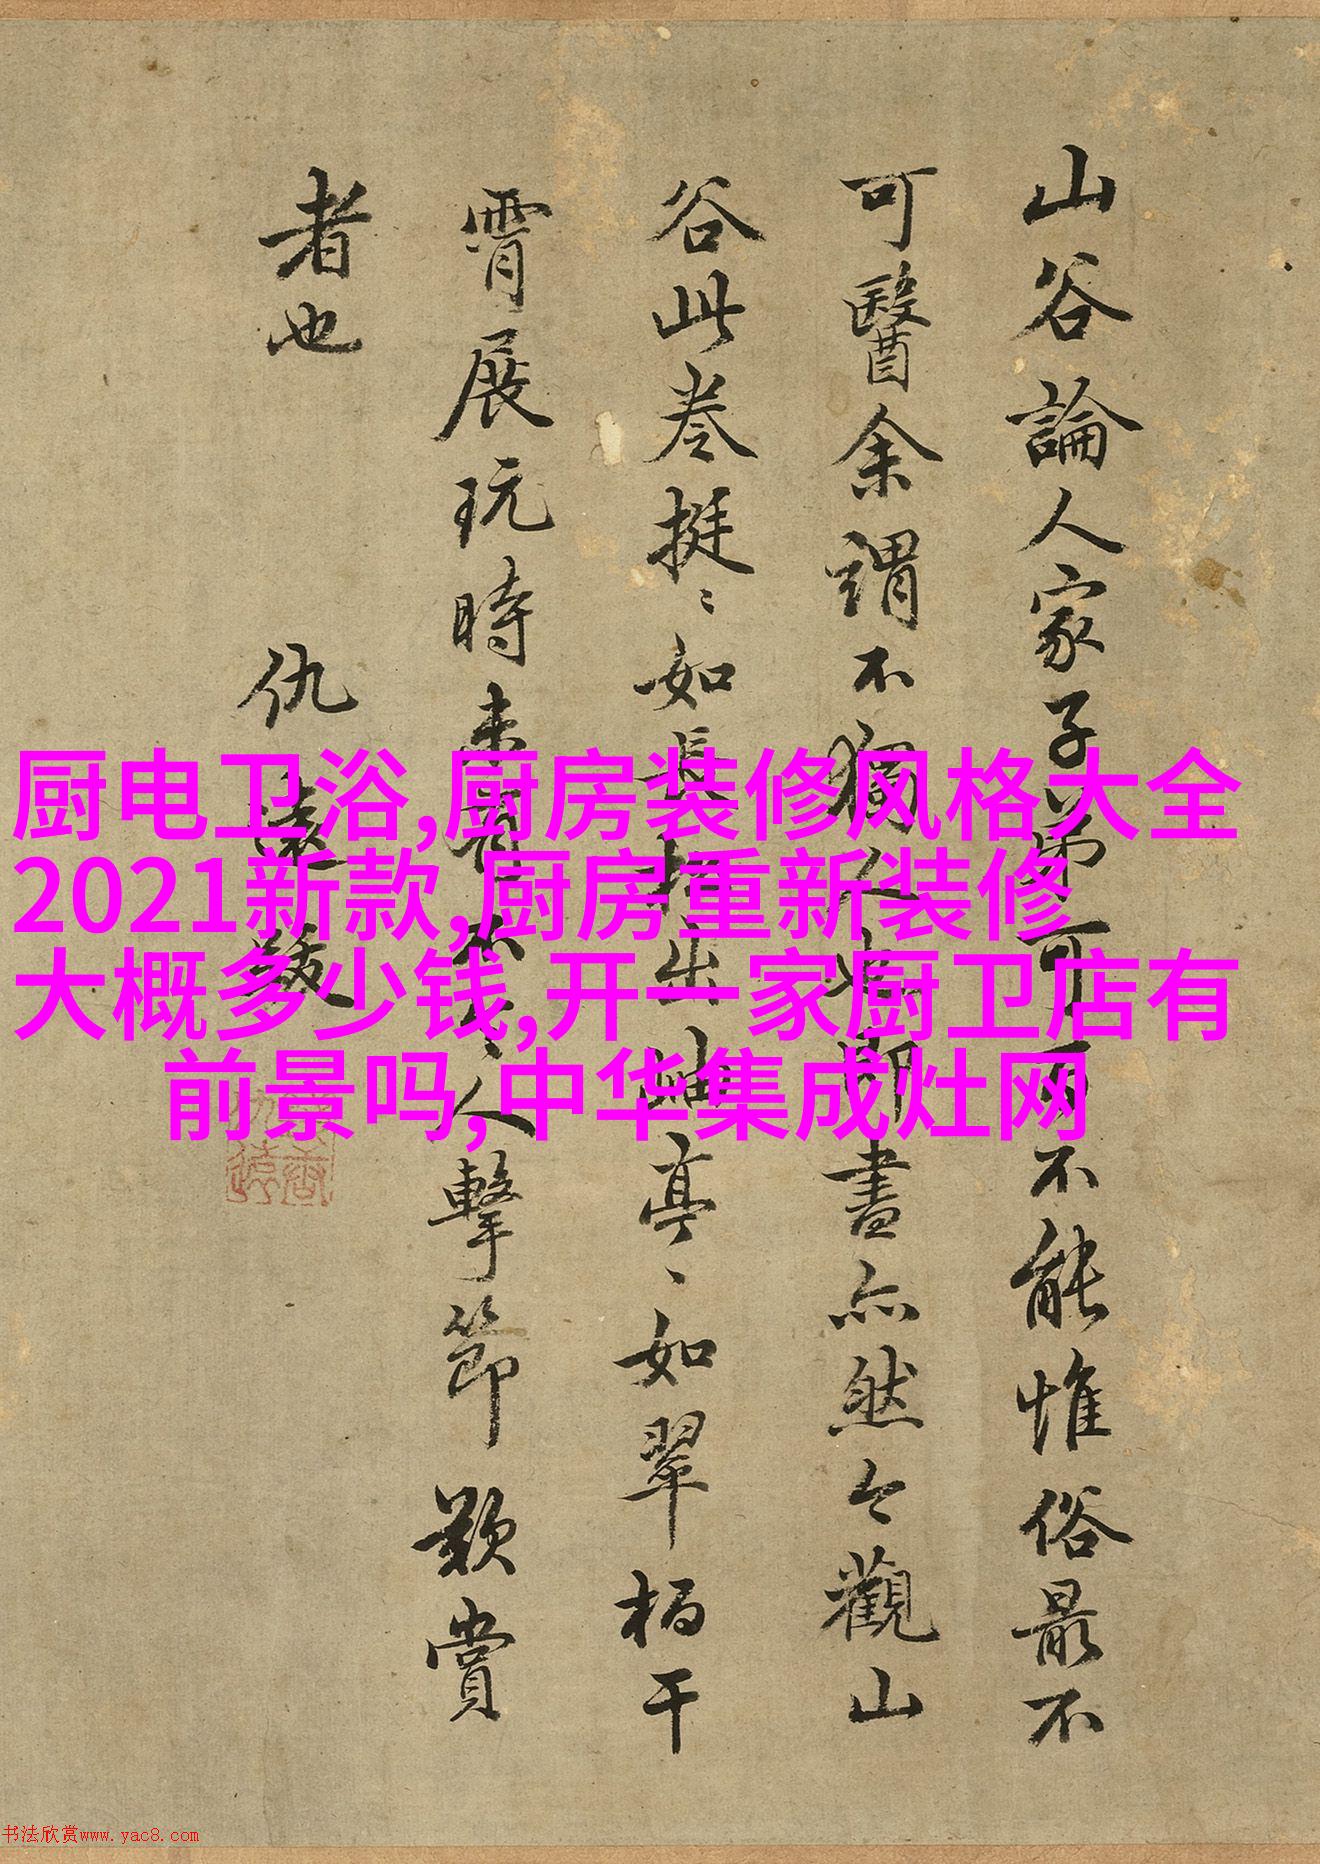 山谷論人家子弟可不能惟俗最不
可醫余謂不獨人也即書亦然今觀山
谷此卷挺〻如長出岫亭〻如翠栢干
霄展玩時未人擊節歎賞
者也
仇遠跋
厨电卫浴,厨房装修风格大全
2021新款,厨房重新装修
大概多少钱,开一家厨卫店有
前景吗,中华集成灶网
书法欣赏www.yac8.com